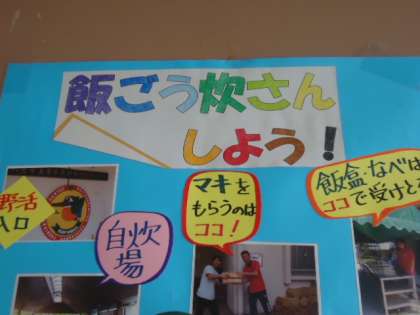 飯ごう炊さん
しよう!
野活
入口
自炊
場
マキを
もらうのは
ココ!
飯盒・なべは
ココで受けと